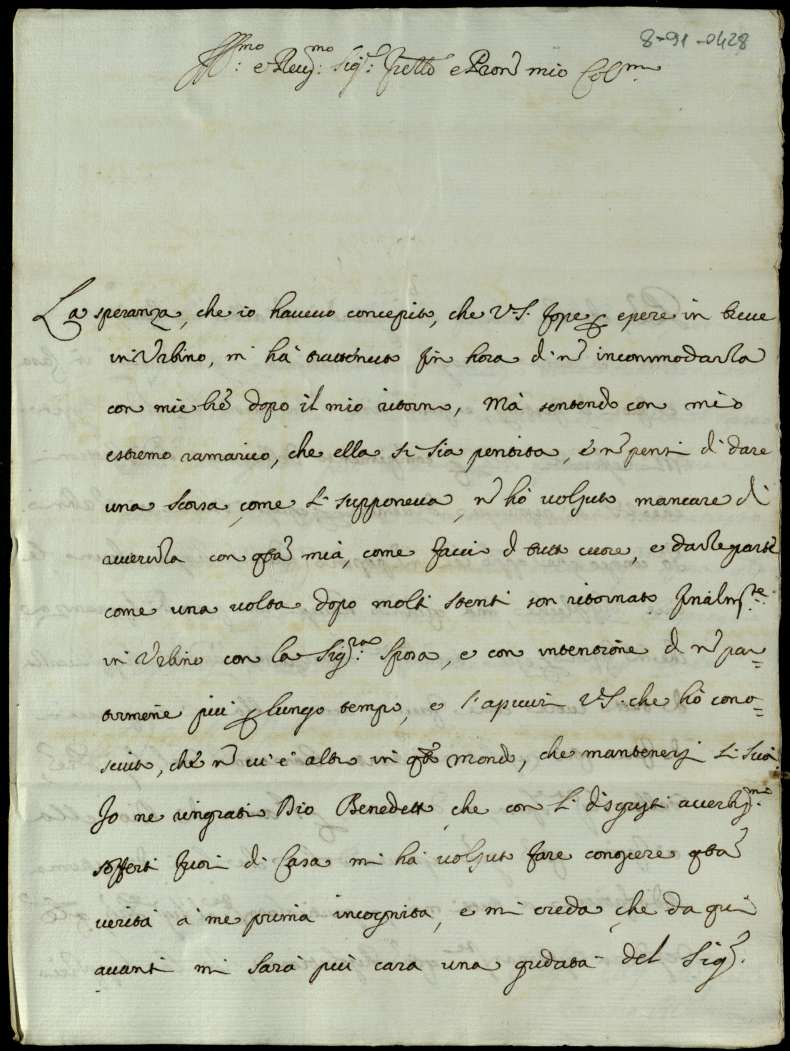 8-91-0428
Ill.mo: e Reu.mo: Sig.r: Frello e Pron mio Col.mo
La speranza, che io haueuo concepito, che V.S. fosse p essere in breue
in Urbino, mi hà trattenuto fin hora di nõ incommodarla
con mie lrẽ dopo il mio ritorno, Mà sentendo con mio
estremo ramarico, che ella si sia pentita, è nõ pensi di dare
una scorsa come si supponeua, nõ hò uolsuto mancare di
riuerirla con qsta mia, come faccio di tutto cuore, e darle parte
come una uolta dopo molti stenti son ritornato finalm.te:
in Urbino con la Sig.ra: Sposa, e con intenzione di nõ par=
tirmene più p lungo tempo, e s'assicuri V.S. che hò cono=
sciuto, che nõ ui è altro in qsto mondo, che mantenersi li suoi
Io ne ringratio Dio Benedetto che con li disgusti
sofferti fuori di Casa mi hà uolsuto fare conoscere qsta
uerità à me prima incognita, e mi creda che da qui
auanti mi sarà più cara una gridata del Sig.r